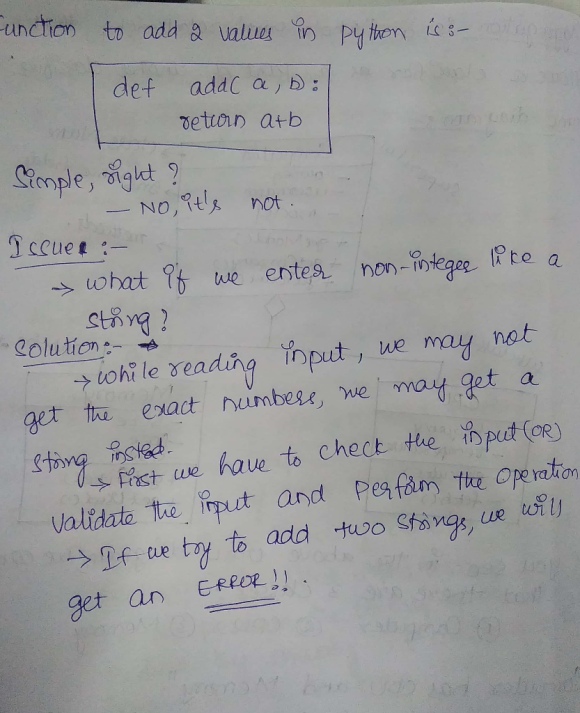 Function to add 2 values in python is :-
def add( a, b):
return a+b
Simple, right ?
— NO, it's not.
Issue :-
→ what if we enter non-integer like a
string ?
Solution :- →
→ while reading input, we may not
get the exact numbers, we may get a
string insted.
→ First we have to check the input (OR)
Validate the input and perform the operation
→ If we try to add two strings, we will
get an ERROR!!.